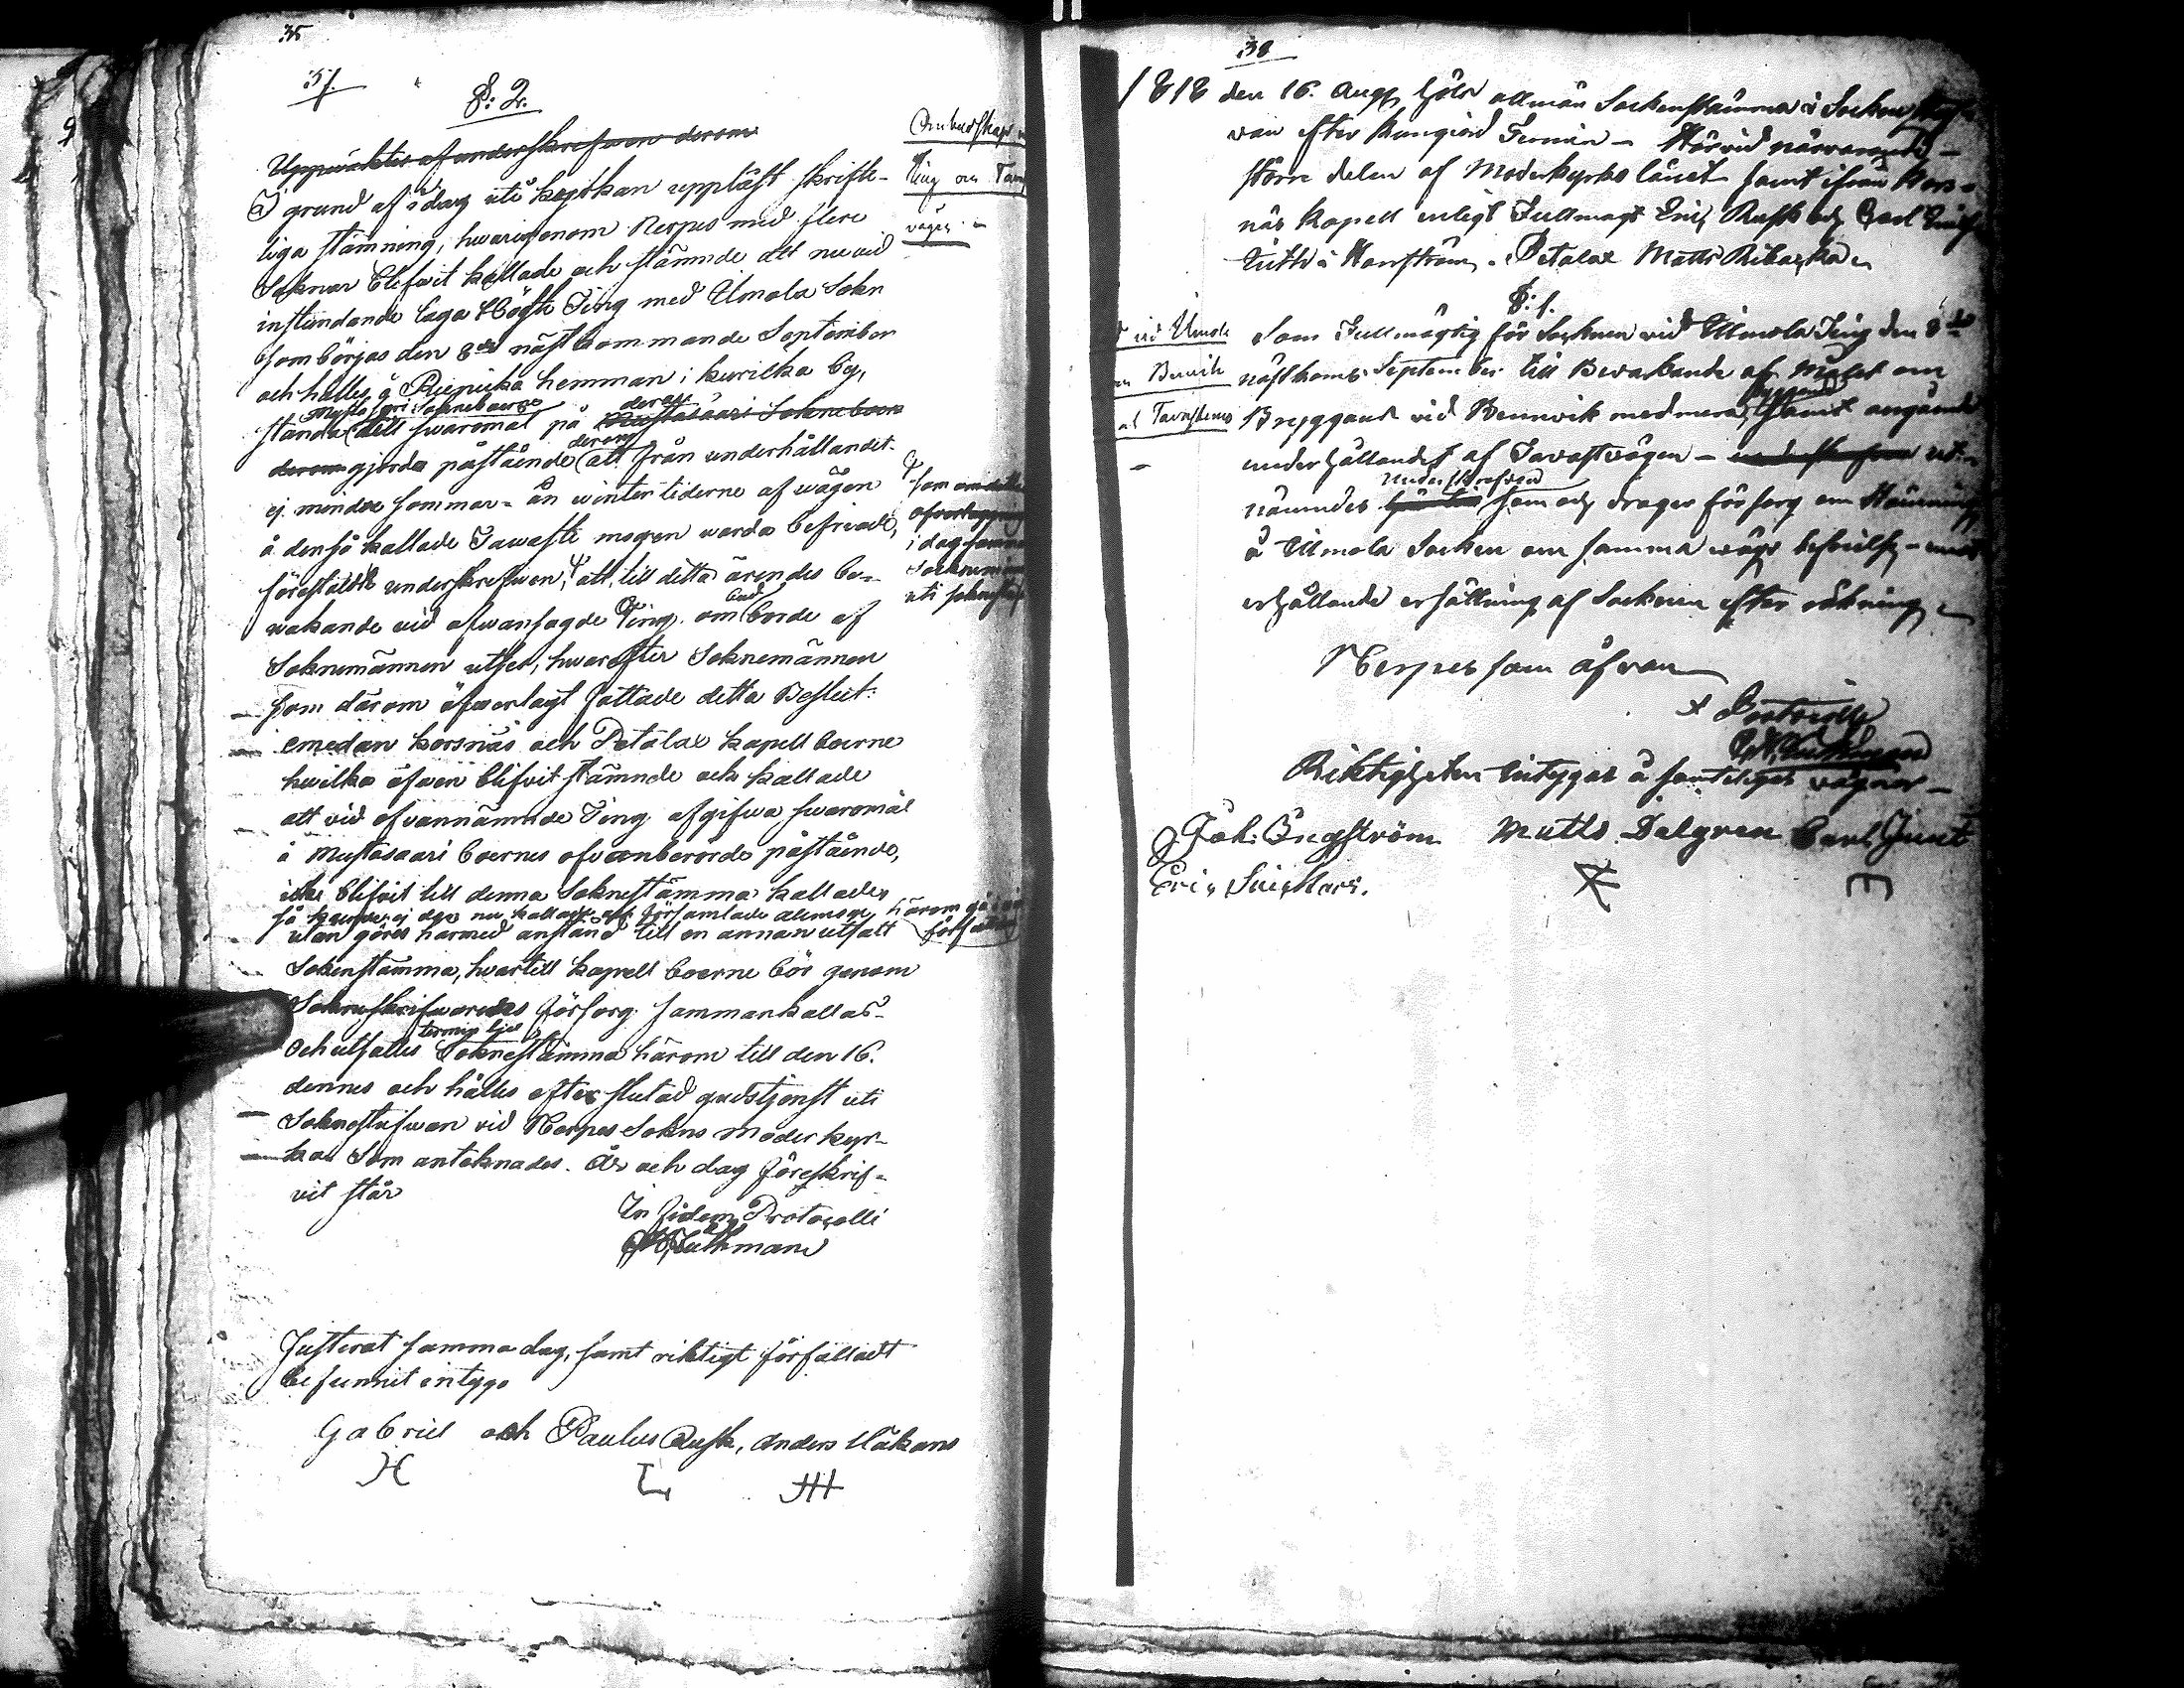 35
37.
§: 2.
Uppwaktes af underskrefwen derom
I grund af i dag uti kyrkan uppläst skrift-
liga stämning, hwarigenom Nerpes med flere
Soknar blifwit kallade och stämnde att nu vid
instundande laga Höste Ting med Ilmola Sokn
som börjas den 8de nästkommande September
och hålles å Riepuska hemman i kurikka by,
Mustasari Sokneboerne deras
stända till swaromål på Mustasaari Sokneboers
derom
derom gjorda påstående att från underhållandet
ej mindre sommar- än wintertiderne af wägen
å den så kallade Tawaste mogen warda befriade,
föreställde underskrefwen, att, till detta ärendes be-
bud
wakande vid ofwansagde Ting omborde af
Soknemännen utses, hwarefter Soknemännen
som därom öfwerlagt fattade detta Beslut:
emedan korsnäs och Petalax kapellboerne
hwilka äfwen blifvit stämnde och kallade
att vid ofvannämnde Ting afgifwa swaromål
å Mustasaari boernes ofvanberörde påstående,
icke blifvit till denna Soknestämma kallade,
så kunde ej den nu kallade och församlade allmoge härom
utan göres härmed anstånd till en annan utsatt
Sokenstämma, hwartill kapellboerne bör genom
Sokneskrifwarens försorg sammankallas
termin
Och utsattes Soknestämma härom till den 16.
dennes och hålles efter slutad gudstjenst uti
Soknestufwan vid Nerpes Sokns Moder kyr-
ka Som antecknades. År och dag föreskrif-
vit står
In fidem Protocolli
Justerat samma dag, samt riktigt författadt
befunnit intyga
Gabriel och Paulus Rusk, Anders Håkans
Ombudskap
Ting om
vägen
som
i dag
Soknemän
uti
38
1818 den 16. Aug hölls allmän Sockenstämma i Socken
van efter kungiord Termin - Härvid närvarande
större delen af Moderkyrko länet samt ifrån Kors-
näs Kapell enligt Fullmagt Eric Rusk och Carl
å Korsström. Petalax Matts
§: 1.
vid Ilmola
Som Fullmägtig för Socknen vid Ilmola Ting den 8de
nästkom: September till Bevakande af Målet om
Bryggand vid Bennvik med mera, samt angående
underhållandet af Tavastvägen - underskrefven ut-
Underskrefven
nämndes som och drager försorg om Stämning
å Ilmola Socken om samma vägs befrielse - emot
erhållande ersättning af Socknen efter räkning
Nerpes som ofvan
Riktigheten intygas å samteliges vägnar
Joh: Engström Matts Dalgren Carl Junt
Eric